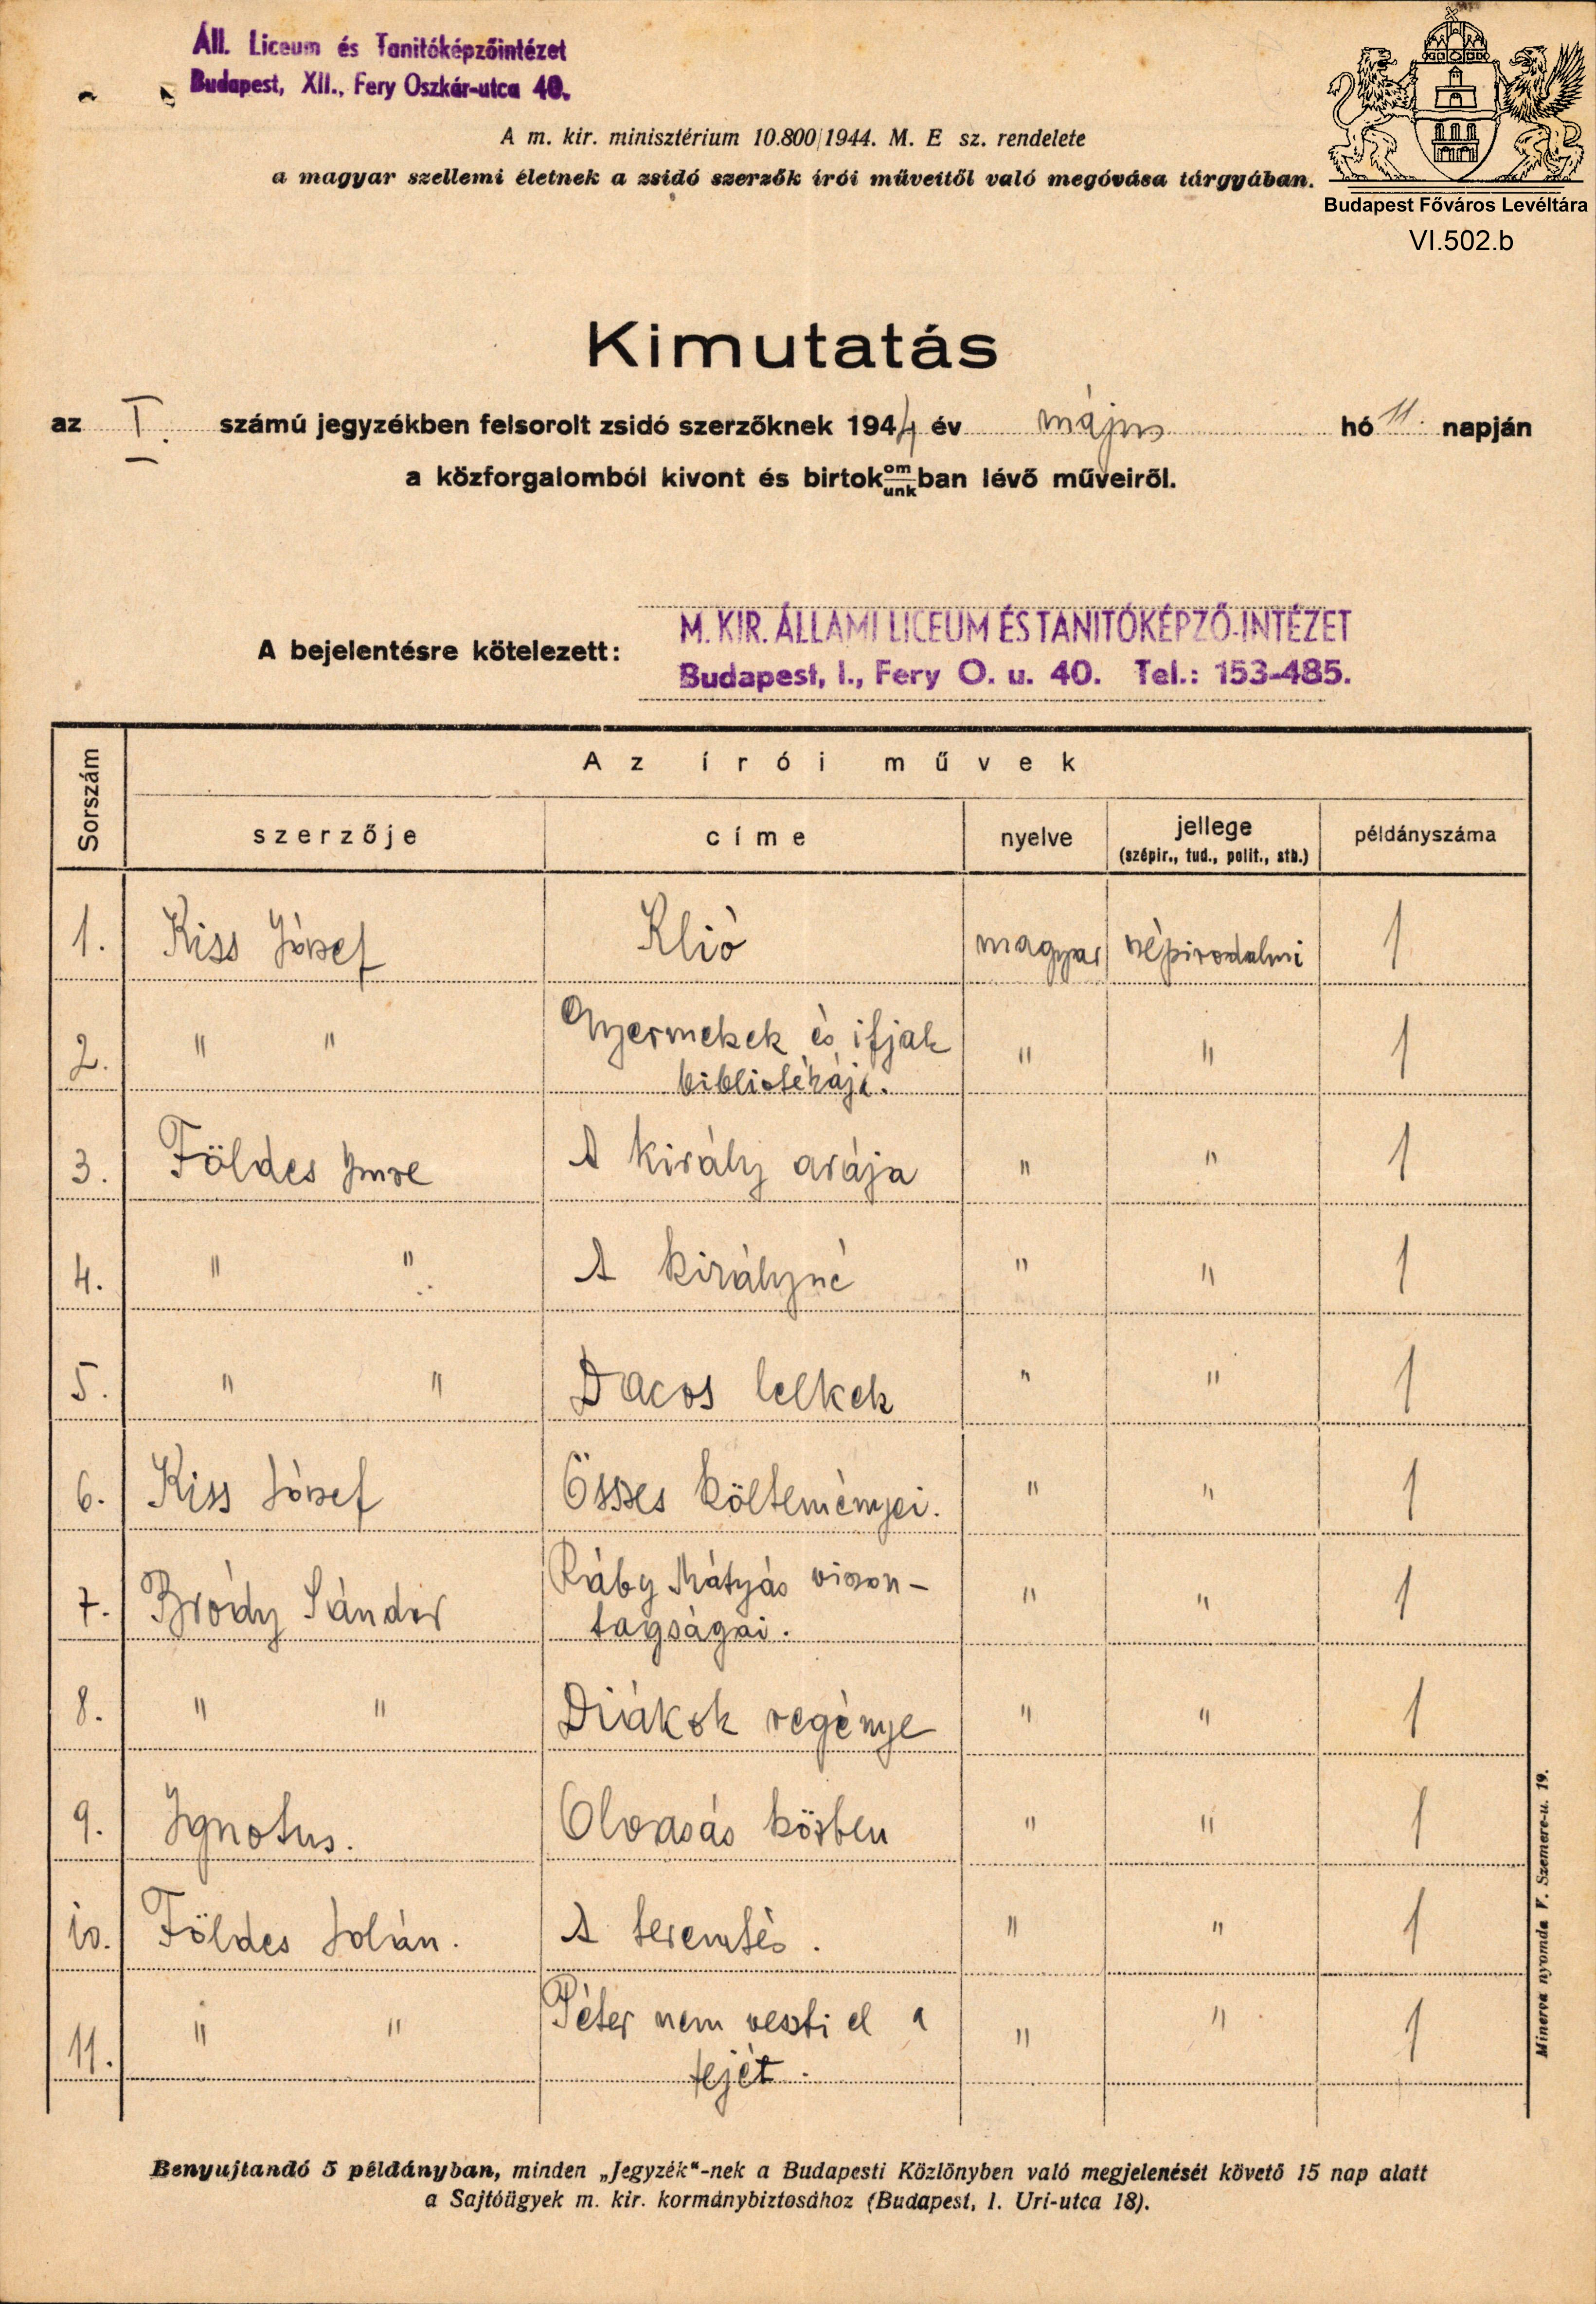 Áll. Liceum és Tanitóképzőintézet
Budapest, XII., Fery Oszkár-utca 40.
A m. kir. minisztérium 10.800/1944. M. E sz. rendelete
a magyar szellemi életnek a zsidó szerzők írói műveitől való megóvása tárgyában.
Budapest Főváros Levéltára
VI.502.b
Kimutatás
az I. számú jegyzékben felsorolt zsidó szerzőknek 1944 év május hó 11. napján
a közforgalomból kivont és birtok om/unk ban lévő műveiről.
A bejelentésre kötelezett:
M. KIR. ÁLLAMI LICEUM ÉS TANITÓKÉPZŐ-INTÉZET
Budapest, I., Fery O. u. 40. Tel.: 153-485.
Sorszám
Az írói művek
szerzője címe nyelve jellege példányszáma
(szépir., tud., polit., stb.)
1. Kiss József Klió magyar szépirodalmi 1
2. " " Gyermekek és ifjak " " 1
bibliotékája.
3. Földes Imre A király arája " " 1
4. " " A királyné " " 1
5. " " Dacos lelkek " " 1
6. Kiss József Összes költeményei. " " 1
7. Bródy Sándor Ráby Mátyás viszon- " " 1
tagságai.
8. " " Diákok regénye " " 1
9. Ignotus. Olvasás közben " " 1
10. Földes Jolán. A teremtés. " " 1
11. " " Péter nem veszti el a " " 1
fejét.
Minerva nyomda V. Szemere-u. 19.
Benyujtandó 5 példányban, minden „Jegyzék“-nek a Budapesti Közlönyben való megjelenését követő 15 nap alatt
a Sajtóügyek m. kir. kormánybiztosához (Budapest, I. Uri-utca 18).